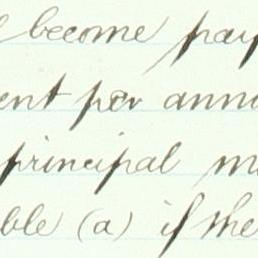 become pay
ent per ann
principal m
ble (a) if the